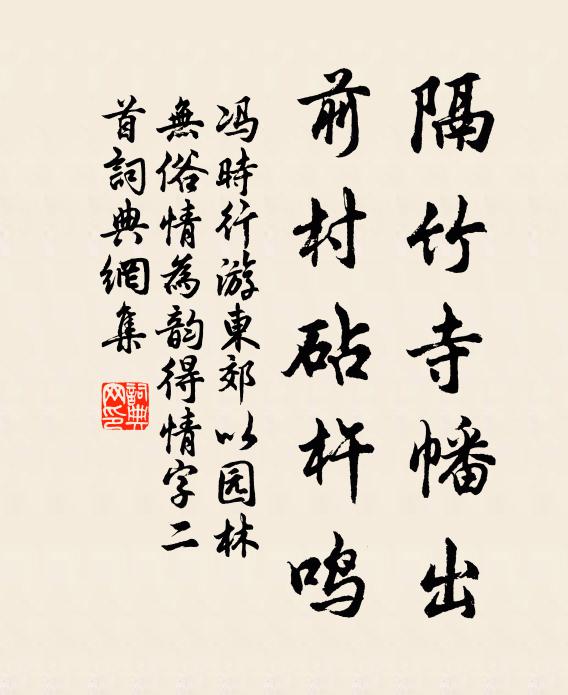 隔竹寺幡出
前村砧杵鸣
冯時行游東郊以园林
無俗情為韵得情字二
首詞典網集
詞典网印